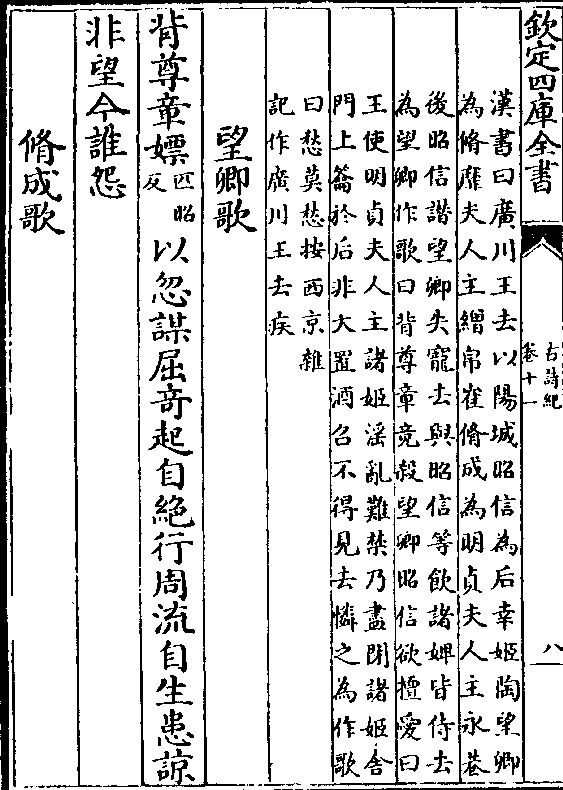 欽定四庫全書
古詩紀
卷十一
八
漢書曰廣川王去以陽城昭信為后幸姬陶望卿
為脩靡夫人主繒帛崔脩成為明貞夫人主永巷
後昭信譖望卿失寵去與昭信等飲諸婢皆侍去
為望卿作歌曰背尊章竟殺望卿昭信欲擅愛曰
王使明貞夫人主諸姬淫亂難禁乃盡閉諸姬舍
門上籥於后非大置酒召不得見去憐之為作歌
曰愁莫愁按西京雜
記作廣川王去疾
望卿歌
背尊章嫖匹昭反以忽謀屈竒起自絶行周流自生患諒
非望今誰怨
脩成歌